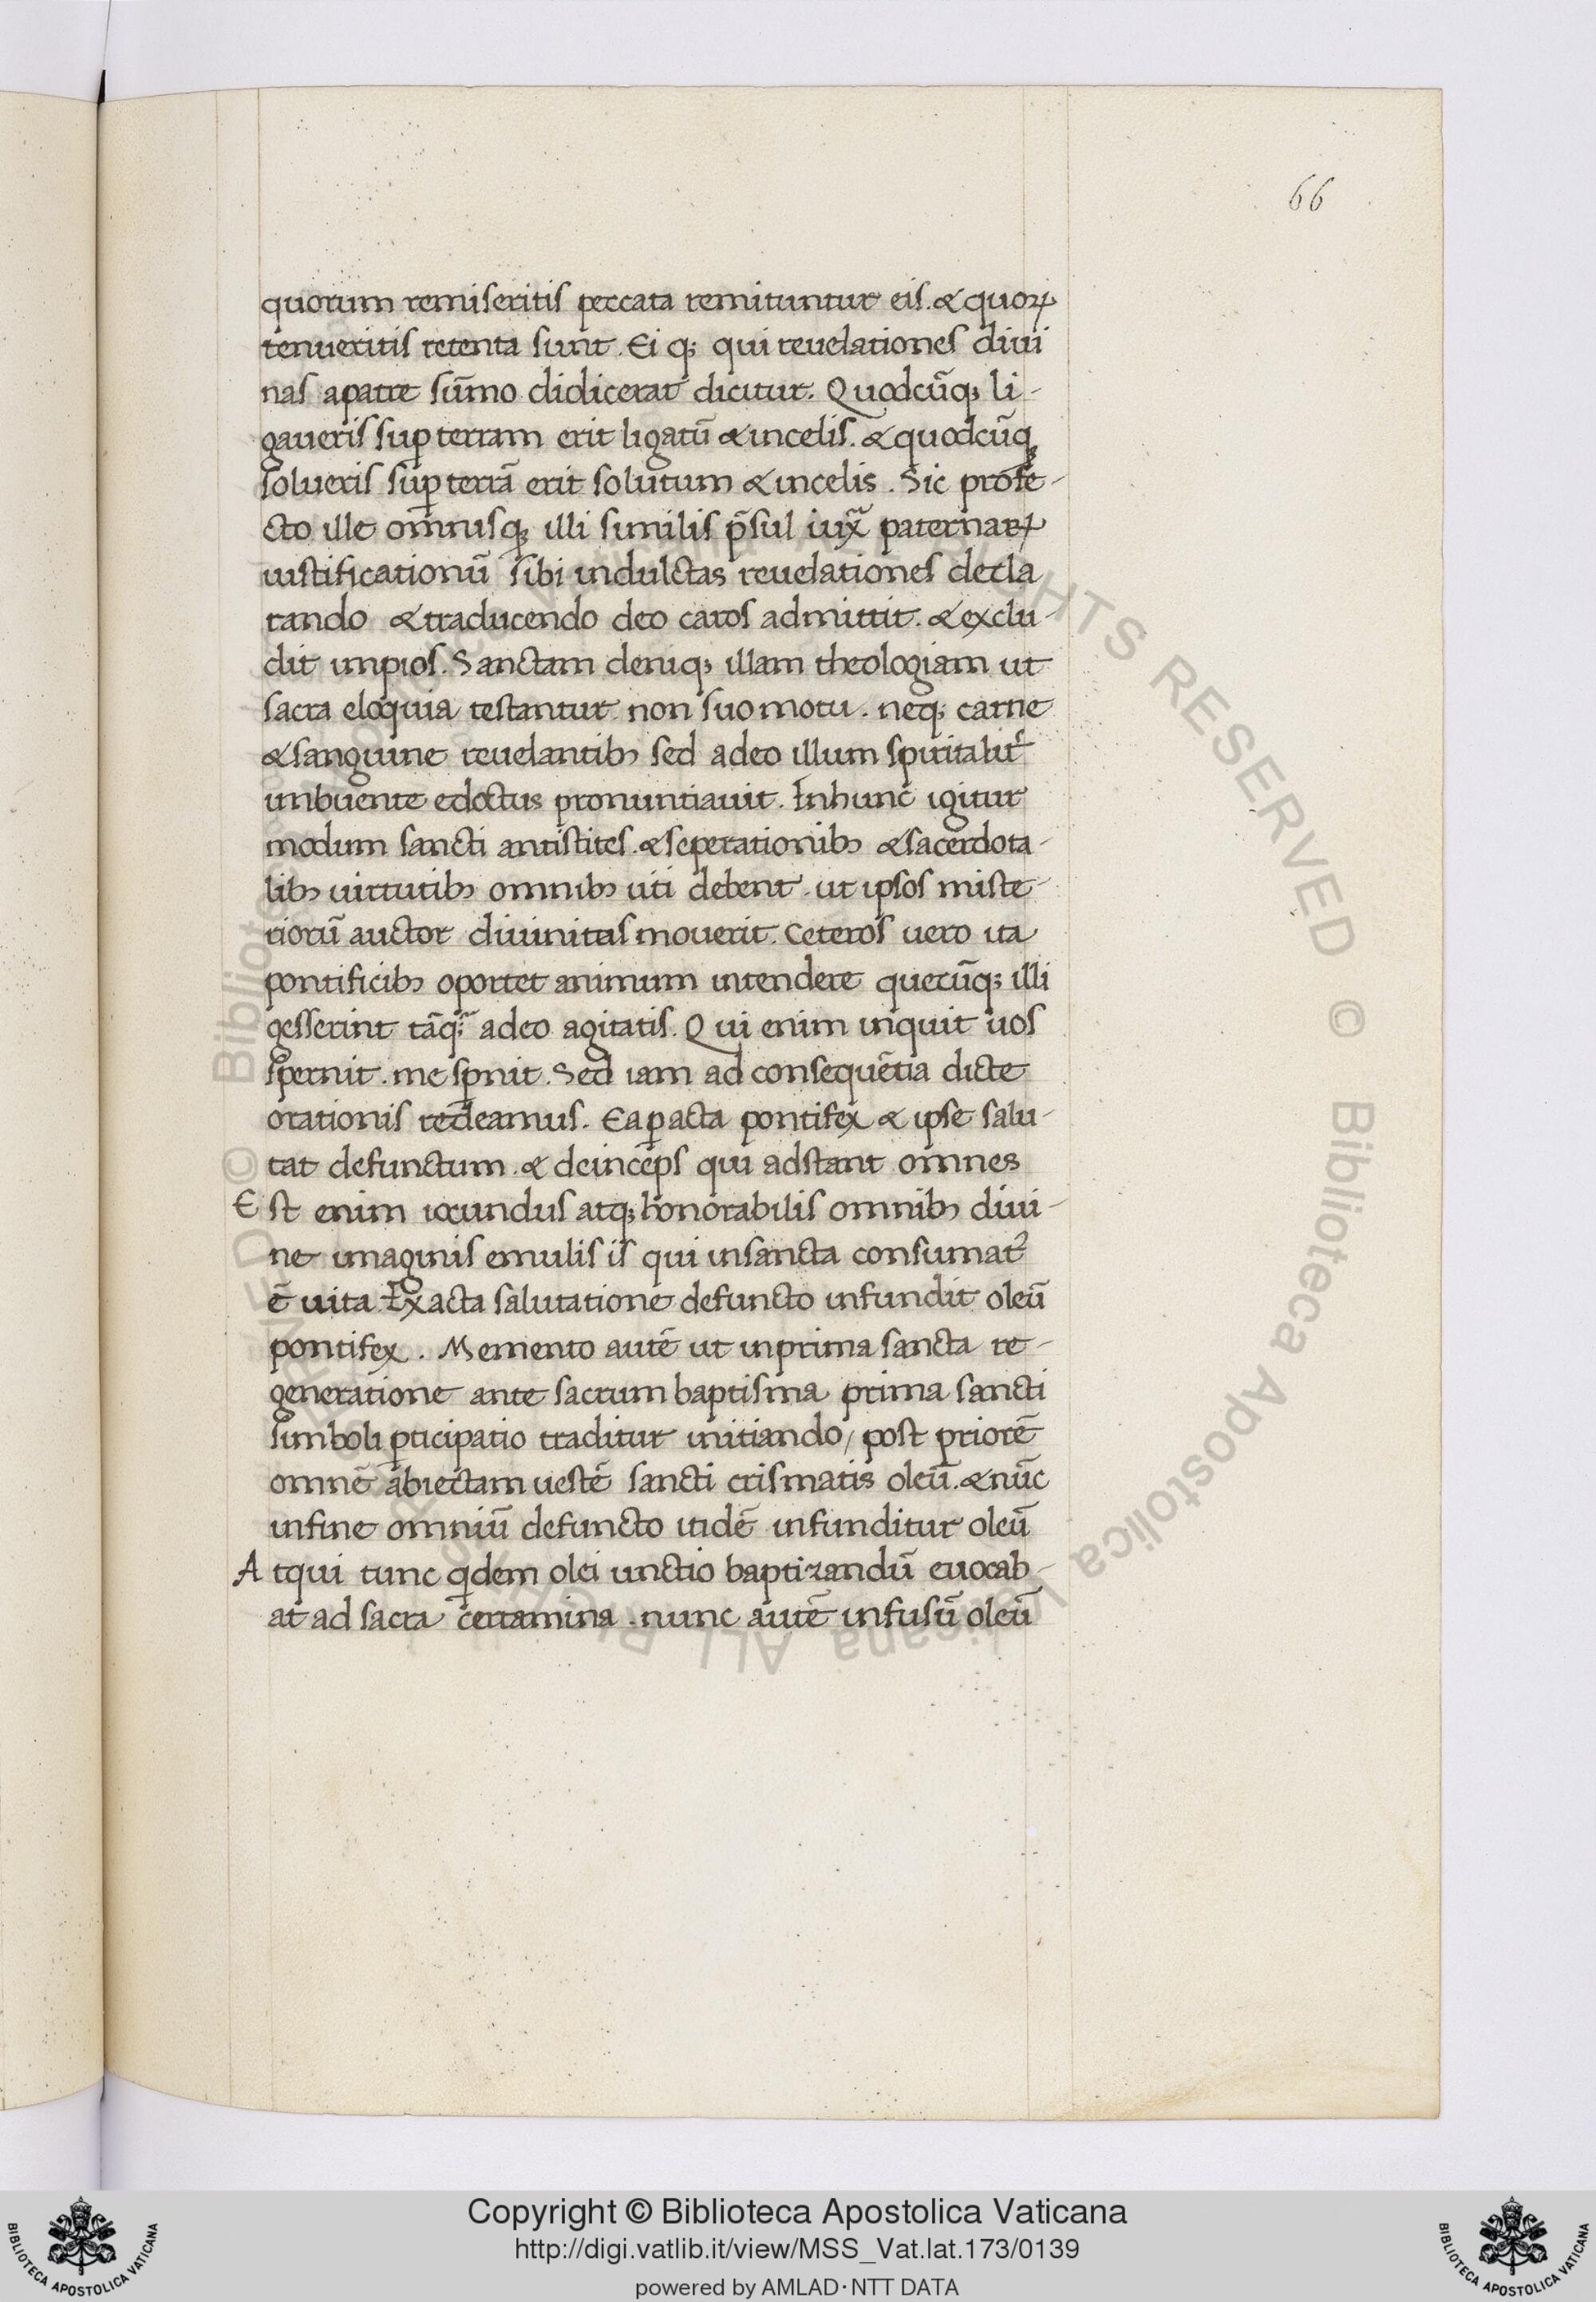 66
quorum remiseritis peccata remituntur eis. & quoꝝ
tenueritis retenta sunt. Ei qꝫ qui reuelationes diui
nas apatre sūmo didicerat dicitur. Quodcūqꝫ li-
gaueris suꝑ terram erit ligatū & incelis. & quodcūqꝫ
solueris suꝑ terrā erit solutum & incelis. Sic profe-
cto ille omnisqꝫ illi similis p̄sul iuxͣ paternaꝝ
iustificationū sibi indultas reuelationes decla
rando & traducendo deo caros admittit. & exclu-
dit impios. Sanctam deniqꝫ illam theologiam ut
sacra eloquia testantur non suo motu. neqꝫ carne
& sanguine reuelantibꝫ sed adeo illum spiritalit᷑
imbuente edoctus pronuntiauit. Inhunc igitur
modum sancti antistites. & seperationibꝫ & sacerdota-
libꝫ uirtutibꝫ omnibꝫ uti debent. ut ipsos miste-
riorū auctor diuinitas mouerit. Ceteros uero ita
pontificibꝫ oportet animum intendere quecūqꝫ illi
gesserint tāqͣꝫ adeo agitatis. Qui enim inquit uos
spernit. me sꝑnit. Sed iam ad consequētia dicte
orationis redeamus. Ea ꝑacta pontifex & ipse salu-
tat defunctum. & deinceps qui adstant omnes
Est enim iocundus atqꝫ honorabilis omnibꝫ diui-
ne imaginis emulis is qui insancta consumat᷑
ē uita. Exacta salutatione defuncto infundit oleū
pontifex. Memento autē ut inprima sancta re-
generatione ante sacrum baptisma prima sancti
simboli ꝑticipatio traditur initiando/ post priorē
omnē abiectam uestē sancti crismatis oleū. & nūc
infine omniū defuncto itidē infunditur oleū
Atqui tunc qͥdem olei unctio baptizandū euocab-
at ad sacra certamina. nunc autē infusū oleū
© Biblioteca Apostolica Vaticana ALL RIGHTS RESERVED
Copyright © Biblioteca Apostolica Vaticana
http://digi.vatlib.it/view/MSS_Vat.lat.173/0139
powered by AMLAD·NTT DATA
BIBLIOTECA APOSTOLICA VATICANA
BIBLIOTECA APOSTOLICA VATICANA